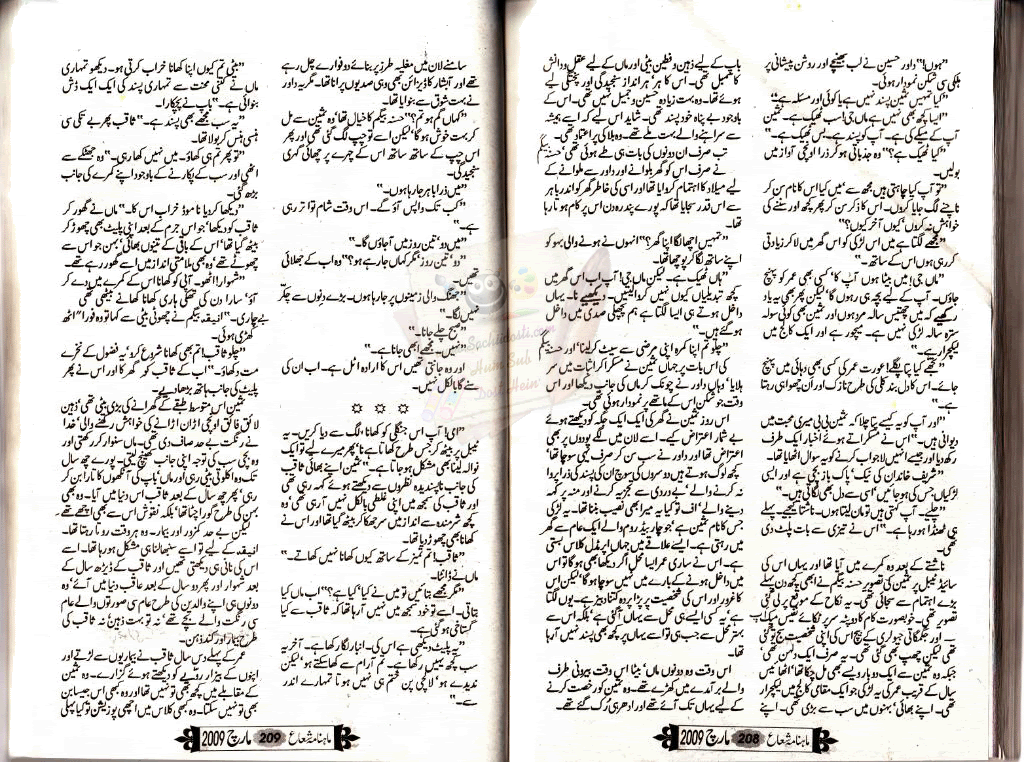 ”ہوں!“ داور حسین نے لب بھینچے اور روشن پیشانی پر
ہلکی سی شکن نمودار ہوئی۔
”کیا تمہیں ثمین پسند نہیں ہے یا کوئی اور مسئلہ ہے“
”ایسا کچھ بھی نہیں ہے ماں جی! سب ٹھیک ہے۔ ثمین
آپ کے میکے کی ہے۔ آپ کو پسند ہے۔ بس ٹھیک ہے۔“
”کیا ٹھیک ہے؟“ وہ جذباتی ہو کر ذرا اونچی آواز میں
بولیں۔
”تو آپ کیا چاہتی ہیں مجھ سے‘ میں کیا اس کا نام سن کر
ناچنے لگ جایا کروں۔ اس کا ذکر سن کر پھر کچھ اور سننے کی
خواہش نہ کروں‘ کیوں آخر کیوں؟“
”مجھے لگتا ہے میں اس لڑکی کو اس گھر میں لا کر زیادتی
کر رہی ہوں اس کے ساتھ۔“
”ماں جی! میں بیٹا ہوں آپ کا‘ کسی بھی عمر کو پہنچ
جاؤں۔ آپ کے لیے بچہ ہی رہوں گا‘ لیکن پھر بھی یہ یاد
رکھیے کہ میں چھتیس سالہ مرد ہوں اور ثمین بھی کوئی سولہ
سترہ سالہ لڑکی نہیں ہے۔ میچور ہے اور ایک کالج میں
لیکچرار ہے۔“
”تجھے کیا پتا پگلے! عورت عمر کی کسی بھی دہائی میں پہنچ
جائے۔ اس کا دل بند کلی کی طرح نازک اور ان چھوا ہی رہتا
ہے۔“
”اور آپ کو یہ کیسے پتا چلا کہ ثمین بی بی میری محبت میں
دیوانی ہیں۔“ اس نے مسکراتے ہوئے اخبار ایک طرف
رکھ دیا اور جیسے انہیں لاجواب کرنے کو یہ سوال اٹھایا تھا۔
”شریف خاندان کی نیک‘ پاک باز بچی ہے اور ایسی
لڑکیاں‘ جس کی ہو جائیں‘ اسی سے دل بھی لگاتی ہیں۔“
”چلیے۔ آپ کہتی ہیں تو مان لیتا ہوں۔ ناشتا کیجیے۔ پہلے
ہی ٹھنڈا ہو رہا ہے۔“ اس نے تیزی سے بات پلٹ دی
تھی۔
ناشتے کے بعد وہ کمرے میں آیا تھا اور یہاں اس کی
سائیڈ ٹیبل پر ثمین کی تصویر حسنہ بیگم نے ابھی کچھ دن پہلے
بڑے اہتمام سے سجائی تھی۔ یہ نکاح کے موقع پر لی گئی
تصویر تھی۔ خوبصورت کام کا دوپٹہ سر پر ٹکائے نفیس میک اپ
اور جگمگاتی جیولری کے بیچ اس کی اپنی شخصیت سج تو گئی
تھی لیکن چھپ بھی گئی تھی۔ یہ صرف ایک دلہن تھی‘
جبکہ وہ ثمین سے ایک دو بار ویسے بھی مل چکا تھا‘ اٹھائیس
سال کے قریب عمر کی یہ لڑکی جو ایک مقامی کالج میں لیکچرار
تھی۔ اپنے بھائی‘ بہنوں میں سب سے بڑی تھی۔ اپنے
باپ کے لیے ذہین و فطین بیٹی اور ماں کے لیے عقل و دانش
کا تھمیل تھی۔ اس کا ہر ہر انداز سنجیدگی اور پختگی لیے
ہوئے تھا۔ وہ بہت زیادہ حسین و جمیل نہیں تھی۔ اس کے
باوجود بے پناہ خود پسند تھی۔ شاید اس لیے کہ اسے ہمیشہ
سے سراہنے والے بہت ملے تھے۔ وہ بلا کی پر اعتماد تھی۔
تب صرف ان دونوں کی بات ہی طے ہوئی تھی‘ حسنہ بیگم
نے صرف اسے گھر دکھلوانے اور داور سے ملوانے کے
لیے میلاد کا اہتمام کروایا تھا اور اسی کی خاطر گھر کو اندر باہر
سے اس قدر سجایا تھا کہ پورے پندرہ دن اس پر کام ہوتا رہا
تھا۔
”تمہیں اچھا لگا اپنا گھر؟“ انہوں نے ہونے والی بہو کو
اپنے ساتھ لگا کر پوچھا تھا۔
”ہاں ٹھیک ہے۔ لیکن ماں جی! آپ لب اس گھر میں
کچھ تبدیلیاں کیوں نہیں کروالیتیں۔ دیکھیے نا۔ یہاں
داخل ہوتے ہی ایسا لگتا ہے ہم پچھلی صدی میں داخل
ہو گئے ہیں۔“
”چلو تم اپنا کمرہ اپنی مرضی سے سیٹ کر لینا‘ اور حسنہ بیگم
کی اس بات پر جہاں ثمین نے مسکرا کر اثبات میں سر
ہلایا‘ وہاں داور نے چونک کر ماں کی جانب دیکھا اور اس
وقت جو شکن اس کے ماتھے پر نمودار ہوئی تھی۔
اس روز ثمین نے گھر کی ایک ایک جگہ کو دیکھتے ہوئے
بے شمار اعتراض کیے۔ اسے لان میں لگے پودوں پر بھی
اعتراض تھا اور داور نے سب سن کر صرف یہی سوچا تھا‘
کچھ لوگ ہوتے ہیں دوسروں کی سوچ ان کی پسند کی ذرا پروا
نہ کرنے والے‘ بے دردی سے تجزیہ کرنے اور منہ پر کہہ
دینے والے‘ اف تو کیا یہ میرا بھی نصیب بننا تھا۔ یہ لڑکی
جس کا نام ثمین ہے‘ جو چار بیڈ روم والے ایک عام سے گھر
میں رہتی ہے۔ ایسے علاقے میں جہاں اپر مڈل کلاس بستی
ہے۔ اس نے ساری عمر ایسا محل اگر دیکھا بھی ہو گا تو اس
میں داخل ہونے کے بارے میں نہیں سوچا ہو گا‘ لیکن اس
کا غرور اور اس کی شخصیت پر پڑا پردہ کتنا دبیز ہے۔ یوں لگتا
ہے‘ یہ کسی ایسے ہی محل سے یہاں آ گئی ہے‘ بلکہ اس سے
بہتر محل سے جب ہی تو اسے یہاں پر کچھ بھی پسند نہیں آ رہا
تھا۔
اس وقت وہ دونوں ماں‘ بیٹا اس وقت بیرونی طرف
والے برآمدے میں کھڑے تھے۔ وہ ثمین کو رخصت کرنے
کے لیے یہاں تک آئے تھے اور ادھر ہی رک گئے تھے۔
ماہنامہ شعاع 208 مارچ 2009
سامنے لان میں مغلیہ طرز پر بنائے دو فوارے چل رہے
تھے اور آبشار کا ڈیزائن بھی وہی صدیوں پرانا تھا۔ مگر یہ داور
نے بہت شوق سے بنوایا تھا۔
”کہاں گم ہو تم؟“ حسنہ بیگم کا خیال تھا‘ وہ ثمین سے مل
کر بہت خوش ہو گا‘ لیکن اسے تو چپ لگ گئی تھی اور پھر
اس چپ کے ساتھ ساتھ اس کے چہرے پر چھائی گہری
سنجیدگی۔
”میں ذرا باہر جا رہا ہوں۔“
”کب تک واپس آؤ گے۔ اس وقت شام تو اتر رہی
ہے۔“
”میں دو‘ تین روز میں آجاؤں گا۔“
”دو‘ تین روز‘ مگر کہاں جا رہے ہو؟“ وہ اب کے جھلائی
تھیں۔
”جھنگ والی زمینوں پر جا رہا ہوں۔ بڑے دنوں سے چکر
نہیں لگا۔“
”صبح چلے جانا۔“
”نہیں۔ مجھے ابھی جانا ہے۔“
اور وہ جانتی تھیں اس کا ارادہ اٹل ہے۔ اب ان کی
سنے گا بالکل نہیں۔
☼ ☼ ☼
”امی! آپ اس جنگلی کو کھانا الگ سے دیا کریں۔ یہ
ٹیبل پر بیٹھ کر جس طرح کھاتا ہے نا‘ پھر میرے لیے تو ایک
نوالہ لینا بھی مشکل ہو جاتا ہے۔“ ثمین اپنے بھائی ثاقب
کی جانب ناپسندیدہ نظروں سے دیکھتے ہوئے کہہ رہی تھی
اور ثاقب کی سمجھ میں اپنی غلطی بالکل نہیں آ رہی تھی وہ
کچھ شرمندہ سے انداز میں سر جھکا کر بیٹھ گیا تھا اور اس نے
کھانا بھی چھوڑ دیا تھا۔
”ثاقب! تم تمیز کے ساتھ کیوں کھانا نہیں کھاتے۔“
ماں نے ڈانٹا۔
”مگر مجھے بتائیں تو میں نے کیا‘ کیا ہے؟“ اب ماں کیا
بتاتی۔ اسے تو خود سمجھ میں نہیں آ رہا تھا کہ ثاقب سے کیا
گستاخی ہو گئی ہے۔
”یہ پلیٹ دیکھی ہے اس کی۔ انبار لگا رکھا ہے۔ آخر یہ
سب کچھ یہیں رکھا ہے۔ تم آرام سے کھا سکتے ہو‘ لیکن
ندیدے ہو‘ لالچی پن ختم ہی نہیں ہوتا تمہارے اندر
سے۔“
”بیٹی تم کیوں اپنا کھانا خراب کرتی ہو۔ دیکھو تمہاری
ماں نے کتنی محنت سے تمہاری پسند کی ایک ایک ڈش
بنوائی ہے۔“ باپ نے پچکارا۔
”یہ سب مجھے بھی پسند ہے۔“ ثاقب پھر بے تکی سی
ہنسی ہنس کر بولا تھا۔
”تو پھر تم ہی کھاؤ۔ میں نہیں کھا رہی۔“ وہ جھٹکے سے
اٹھی اور سب کے پکارنے کے باوجود اپنے کمرے کی جانب
بڑھ گئی۔
”دیکھا کر دیا نا موڈ خراب اس کا۔“ ماں نے گھور کر
ثاقب کو دیکھا‘ جو اس جرم کے بعد اپنی پلیٹ بھی چھوڑ کر
بیٹھ گیا تھا‘ اس کے باقی کے تینوں بھائی‘ بہن جو اس سے
چھوٹے تھے‘ وہ بھی ملامتی انداز میں اسے گھور رہے تھے۔
”شہوار! اٹھو۔ آپی کو کھانا اس کے کمرے میں دے کر
آؤ‘ سارا دن کی تھکی ہاری کھانا کھانے بیٹھی تھی
بے چاری۔“ انیقہ بیگم نے چھوٹی بیٹی سے کہا تو وہ فورا“ اٹھ
کھڑی ہوئی۔
”چلو ثاقب! تم بھی کھانا شروع کرو‘ یہ فضول کے نخرے
مت دکھاؤ۔“ اب کے ثاقب کو گھرکا اور اس نے پھر
پلیٹ کی جانب ہاتھ بڑھا دیے۔
ثمین اس متوسط طبقے کے گھرانے کی بڑی بیٹی تھی‘ ذہین
لائق فائق اونچی اڑان اڑانے کی خواہش رکھنے والی‘ خدا
نے رنگت بے حد صاف دی تھی۔ ماں سنوار کر رکھتی اور
وہ بچی سب کی توجہ اپنی جانب کھینچ لیتی۔ پورے چھ سال
تک وہ اکلوتی بیٹی رہی اور ماں‘ باپ کی آنکھوں کا تارا بن کر
رہی‘ پھر چھ سال کے بعد ثاقب اس دنیا میں آیا۔ وہ بھی
بہن کی طرح گورا چٹا تھا‘ بلکہ نقوش اس سے بھی اچھے تھے
لیکن بے حد کمزور اور بیمار۔ وہ ہر وقت روتا رہتا تھا۔
انیقہ کے لیے تو اسے سنبھالنا ہی مشکل ہو رہا تھا۔ اسے
اس کی نانی ہی دیکھتی تھیں اور ثاقب کے ڈیڑھ سال کے
بعد شہوار اور پھر دو سال کے بعد عاقب دنیا میں آئے‘ وہ
دونوں ہی اپنے والدین کی طرح عام سی صورتوں والے عام
سی رنگت والے بچے تھے‘ نہ تو بہت ذہین‘ نہ ثاقب کی
طرح بیمار اور کند ذہن۔
عمر کے پہلے دس سال ثاقب نے بیماریوں سے لڑتے اور
اپنوں کے بیزار رویے کو دیکھتے ہوئے گزارے۔ وہ ثمین
کے مقابلے میں کچھ بھی تو نہیں تھا اور وہ بھی اس جیسا بن
بھی تو نہیں سکتا۔ وہ کبھی کلاس میں اچھی پوزیشن تو کیا پہلی
ماہنامہ شعاع 209 مارچ 2009